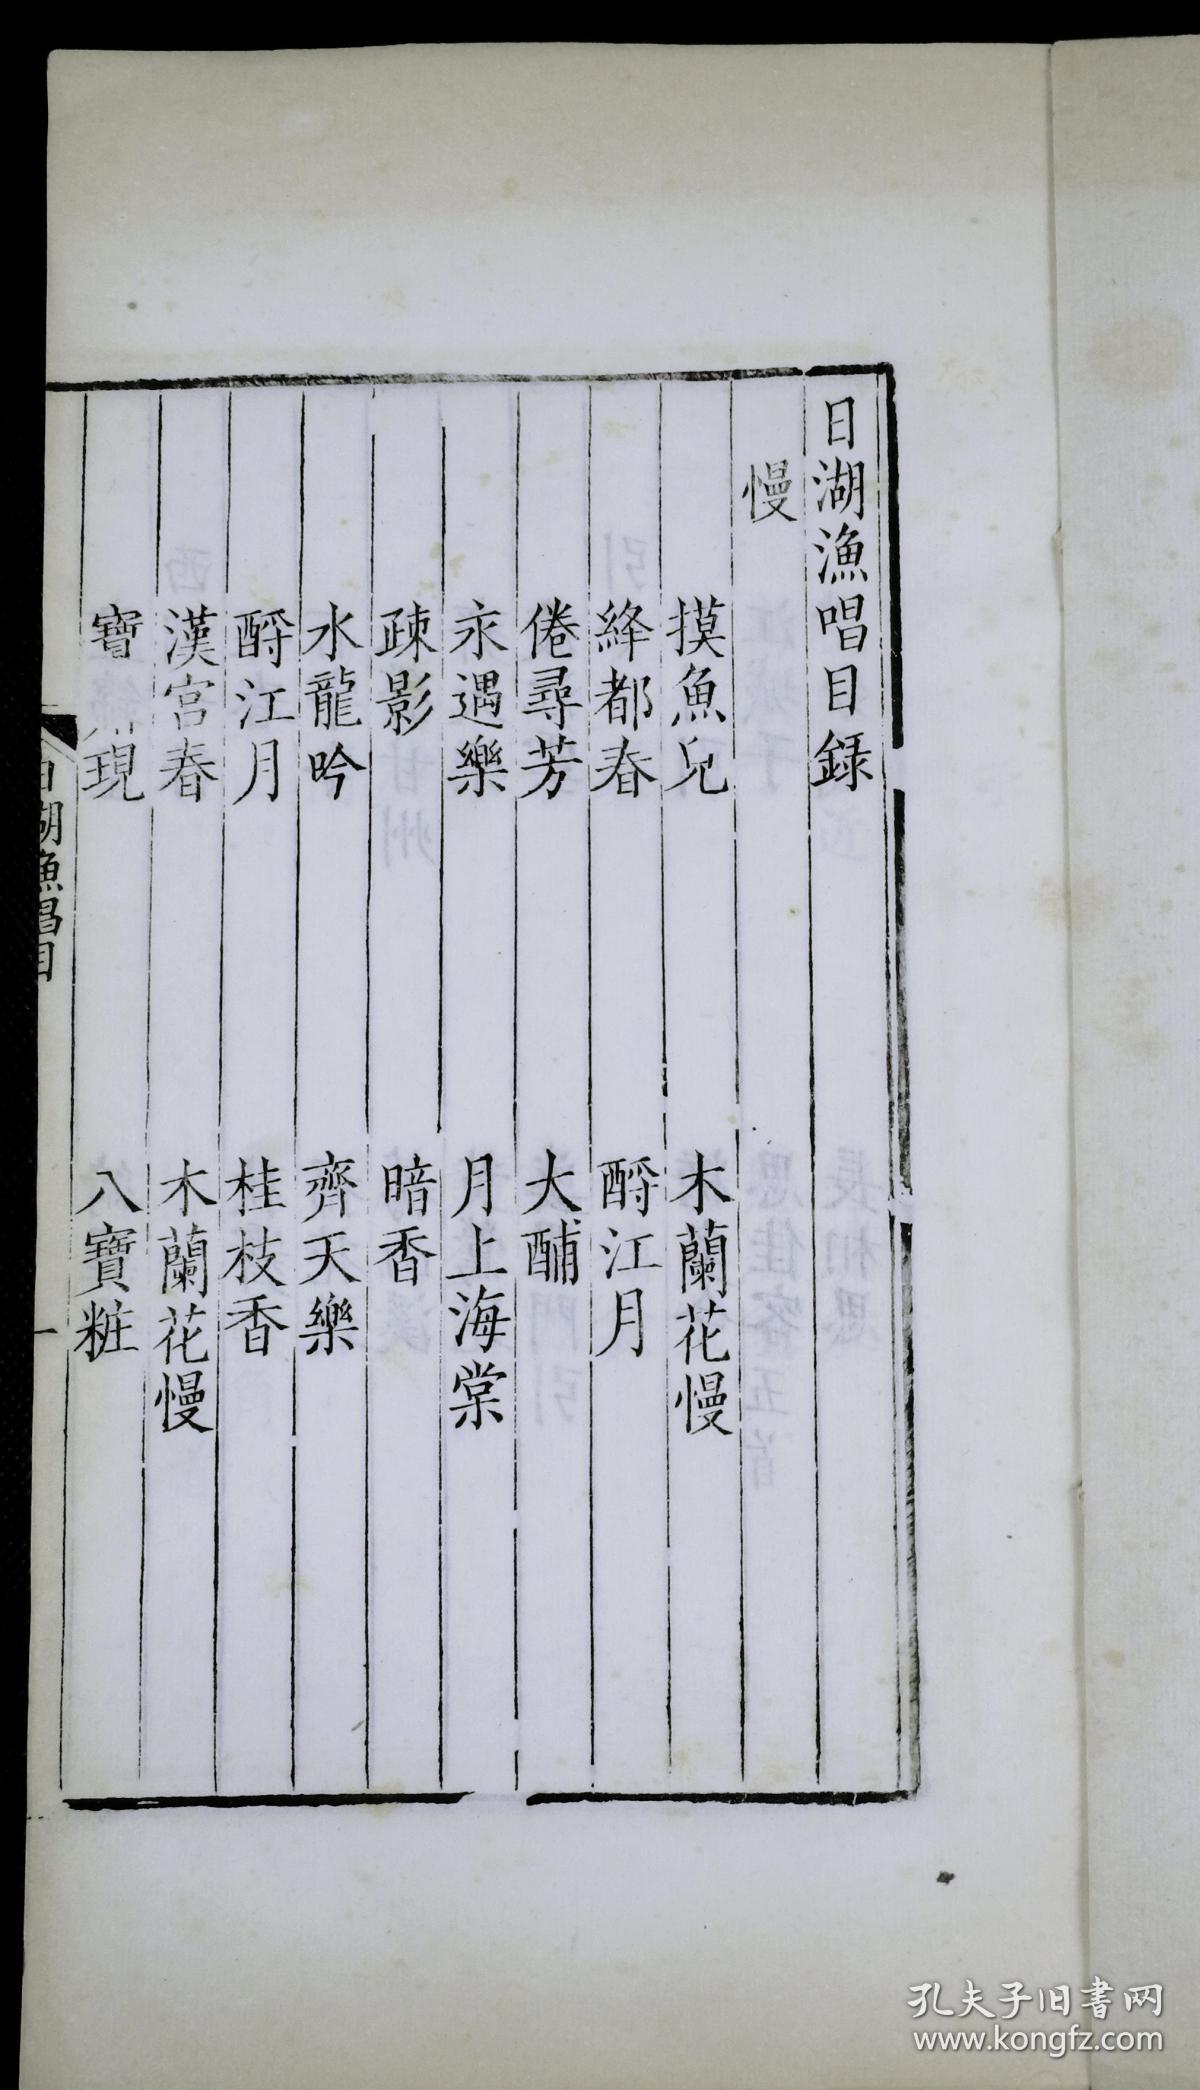 日湖漁唱目録
慢
摸魚兒 木蘭花慢
絳都春 酹江月
倦尋芳 大酺
永遇樂 月上海棠
疎影 暗香
水龍吟 齊天樂
酹江月 桂枝香
漢宮春 木蘭花慢
寶 現 八寶粧
日湖漁唱目 一
孔夫子旧書网
www.kongfz.com